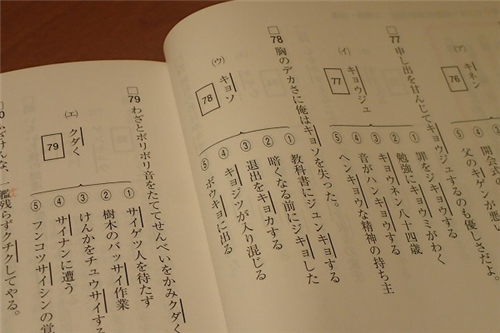 (ア) キネン
76
開会式
父のキゲンが悪い
□77 申し出を甘んじてキョウジュするのも優しさだよ。
(イ) キョウジュ
77
① 罪をジキョウする
② 勉強にキョウミがわく
③ キョウネン八十四歳
④ 音がハンキョウする
⑤ ヘンキョウな精神の持ち主
□78 胸のデカさに俺はキョソを失った。
(ウ) キョソ
78
① 教科書にジュンキョする
② 暗くなる前にジキョした
③ 退出をキョカする
④ キョジツが入り混じる
⑤ ボウキョに出る
□79 わざとボリボリ音をたててせんべいをかみクダく
(エ) クダく
79
① サイゲツ人を待たず
② 樹木のバッサイ作業
③ けんかをチュウサイする
④ サイナンに遭う
⑤ フンコツサイシンの覚
ふざけんな、一艦残らずクチクしてやる。